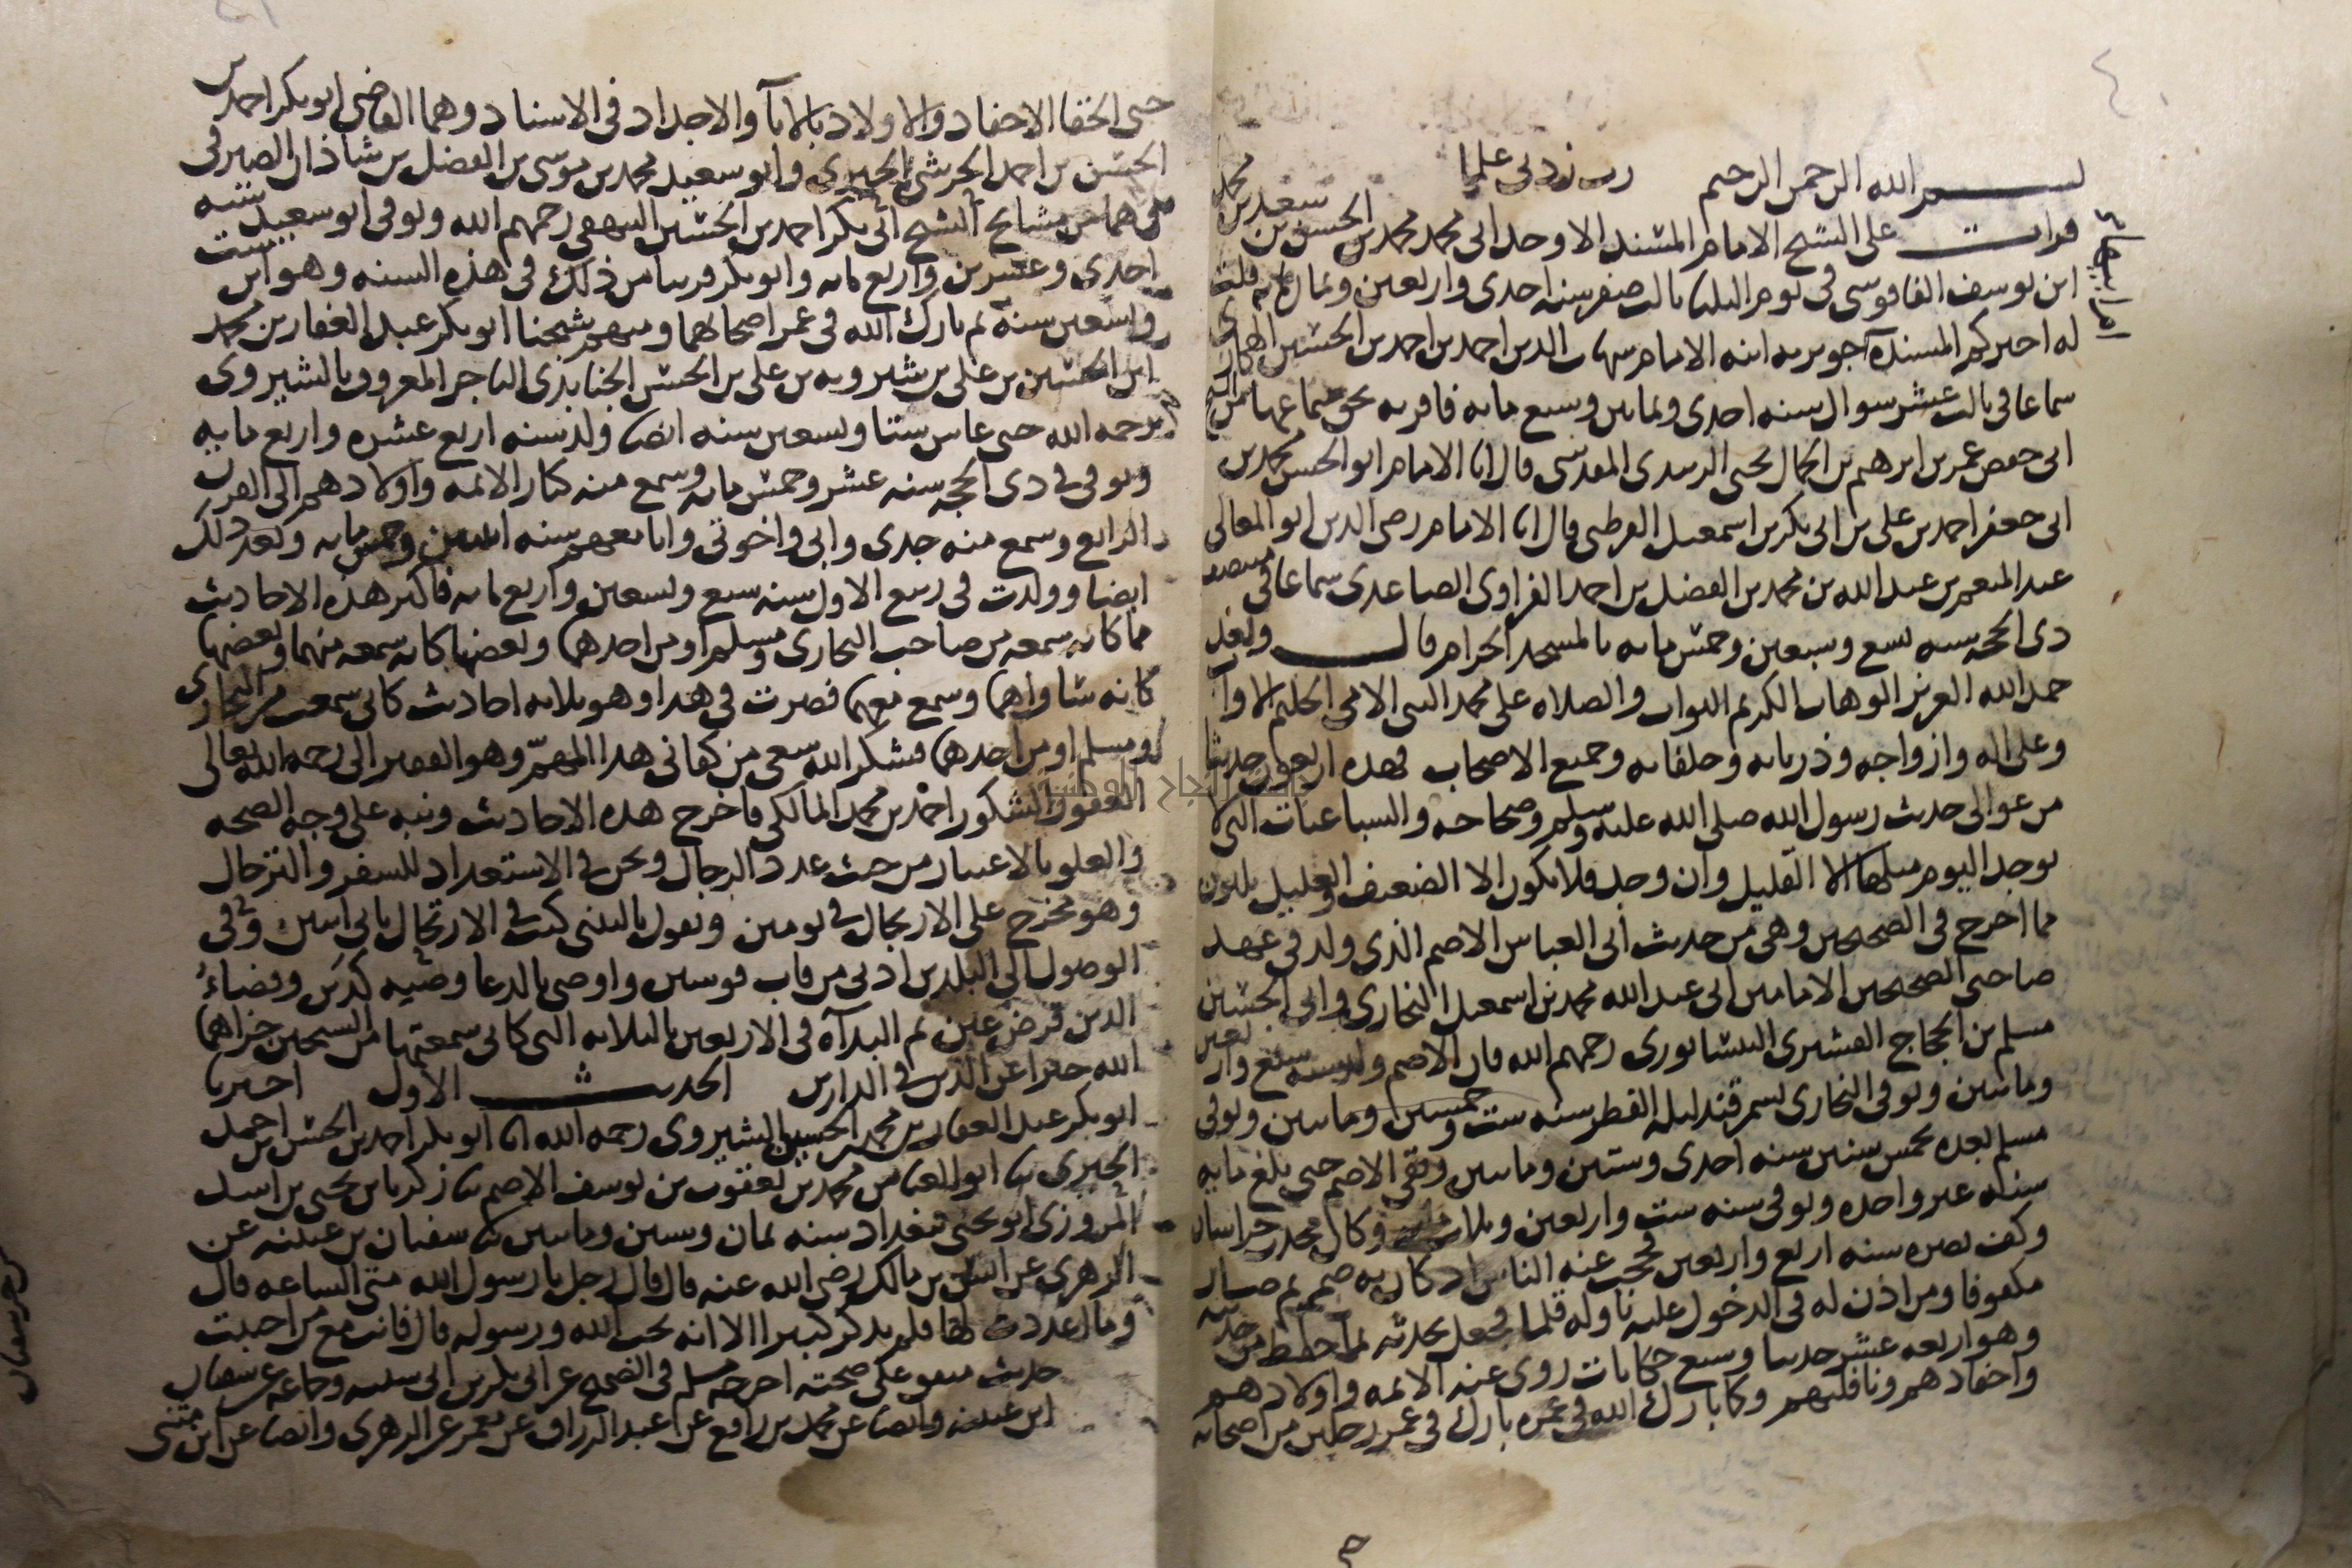 بسم الله الرحمن الرحيم رب زدني علما
قرات على الشيخ الامام المسند الاوحد ابي محمد محمد بن الحسن بن سعيد بن محمد
ابن يوسف الفاقوسي في يوم الثلثا ثالث صفر سنة احدى واربعين وثمان مايه قلت
له اخبركم المسندة جويريه ابنه الامام شهاب الدين احمد بن احمد بن الحسين الهكاري
سماعا في ثالث عشر شوال سنه احدى وثمانين وسبع مايه فاقر به بحق سماعها من الشيخ
ابي حفص عمر بن ابرهيم بن يحيى الرشيدي المقدسي قال انا الامام ابو الحسن محمد بن
ابي جعفر احمد بن علي بن ابي بكر بن اسمعيل القرطبي قال انا الامام رضي الدين ابو المعالي
عبد المنعم بن عبد الله بن محمد بن الفضل بن احمد الفراوي الصاعدي سماعا في
ذي الحجه سنه تسع وسبعين وخمس مايه بالمسجد الحرام قال وبعد
حمد الله العزيز الوهاب الكريم التواب والصلاه على محمد النبي الامي الحليم الاواب
وعلى اله وازواجه وذرياته وخلفائه وجميع الاصحاب فهذه اربعون حديثا
من عوالي حديث رسول الله صلى الله عليه وسلم وصحاحه والسباعيات التي لا
يوجد اليوم مثلها الا القليل وان وجد فلا يكون الا الضعيف والعليل ثلثون
مما اخرج في الصحيحين وهي من حديث ابي العباس الاصم الذي ولد في عهد
صاحبي الصحيحين الامامين ابي عبد الله محمد بن اسمعيل البخاري وابي الحسين
مسلم بن الحجاج القشيري النيسابوري رحمهم الله فان الاصم ولد سنه سبع واربعين
وماتين وتوفي البخاري بسمرقند ليله الفطر سنه ست وخمسين وماتين وتوفي
مسلم بعده بخمس سنين سنه احدى وستين وماتين وبقي الاصم حتى بلغ مايه
سنه غير واحده وتوفي سنه ست واربعين وثلاث مايه وكان محدث خراسان
وكف بصره سنه اربع واربعين فحجب عنه الناس اذ كان به صمم ثم صار
مكفوفا ومن اذن له في الدخول عليه ناوله قلما فجعل يحدثه بما حفظ من حديثه
وهو اربعه عشر حديثا وسبع حكايات روى عنه الائمه واولادهم
واحفادهم ونافلتهم وكما بارك الله في عمره بارك في عمر رجلين من اصحابه
حتى الحقا الاحفاد والاولاد بالابآ والاجداد في الاسناد وهما القاضي ابو بكر احمد بن
الحسن بن احمد الحرشي الحيري وابو سعيد محمد بن موسى بن الفضل بن شاذان الصيرفي
هما من مشايخ الشيخ ابي بكر احمد بن الحسين البيهقي رحمهم الله وتوفي ابو سعيد سنه
احدى وعشرين واربع مايه وابو بكر قريبا من ذلك في هذه السنه وهو ابن ست
وتسعين سنة ثم بارك الله في عمر اصحابهما ومنهم شيخنا ابو بكر عبد الغفار بن محمد
ابن الحسين بن علي بن شيرويه بن علي بن الحسن الجنابذي التاجر المعروف بالشيروي
رحمه الله حتى عاش ستا وتسعين سنه ايضا ولد سنه اربع عشره واربع مايه
وتوفي في ذي الحجه سنه عشر وخمس مايه وسمع منه كبار الائمه واولادهم الى القرن
الرابع وسمع منه جدي وابي واخوتي وانا معهم سنه وخمس مايه وبعد ذلك
ايضا وولدت في ربيع الاول سنه سبع وتسعين واربع مايه فاكثر هذه الاحاديث
مما كانه سمعه من صاحب البخاري ومسلم او من احدهما وبعضها كانه سمعه منهما وبعضها
كانه ساواهما وسمع معهما فصرت في هذا وهو ثلاثه احاديث كاني سمعت من البخاري
ومسلم او من احدهما فشكر الله سعي من كفاني هذا المهمّ وهو الفقير الى رحمه الله تعالى
الغفور الشكور احمد بن محمد المالكي فاخرج هذه الاحاديث ونبه على وجه الصحه
والعلو بالاعتبار من حيث عدد الرجال ونحن في الاستعداد للسفر والترحال
وهو مخرج على الارتجال في يومين ونقول يا ليتني كنت في الارتحال ثاني اثنين وفي
الوصول الى البلدين ادنى من قاب قوسين واوصى بالدعا وصيه كدين وقضاءُ
الدين فرض عين ثم البدآة في الاربعين بالثلاثه التي كاني سمعتها من الشيخين جزاهما
الله خيرا عن الدين في الدارين الحديث الاول اخبرنا
ابو بكر عبد الغفار بن محمد بن الحسين الشيروي رحمه الله انا ابو بكر احمد بن الحسن بن احمد
الحيري ثنا ابو العباس محمد بن يعقوب بن يوسف الاصم ثنا زكريا بن يحيى بن اسد
المروزي ابو يحيى ببغداد سنه ثمان وستين وماتين ثنا سفيان بن عيينه عن
الزهري عن انس بن مالك رضي الله عنه قال قال رجل يا رسول الله متى الساعه قال
وما اعددت لها فلم يذكر كبيرا الا انه يحب الله ورسوله قال فانت مع من احببت
حديث متفق على صحته اخرجه مسلم في الصحيح عن ابي بكر بن ابي شيبه وجماعه عن سفيان
ابن عيينه وايضا عن محمد بن رافع عن عبد الرزاق عن معمر عن الزهري وايضا عن ابن مثنى